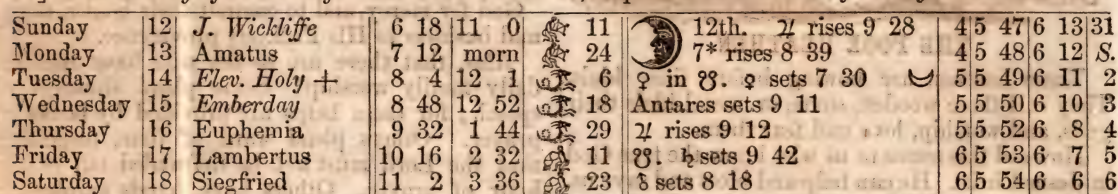 Sunday 12 J. Wickliffe 6 18 11 0 11 12th. ♃ rises 9 28 4 5 47 6 13 31
Monday 13 Amatus 7 12 morn 24 7* rises 8 39 4 5 48 6 12 S.
Tuesday 14 Elev. Holy + 8 4 12 1 6 ♀ in ☋. ♀ sets 7 30 5 5 49 6 11 2
Wednesday 15 Emberday 8 48 12 52 18 Antares sets 9 11 5 5 50 6 10 3
Thursday 16 Euphemia 9 32 1 44 29 ♃ rises 9 12 5 5 52 6 8 4
Friday 17 Lambertus 10 16 2 32 11 ☋. ♄ sets 9 42 6 5 53 6 7 5
Saturday 18 Siegfried 11 2 3 36 23 sets 8 18 6 5 54 6 6 6